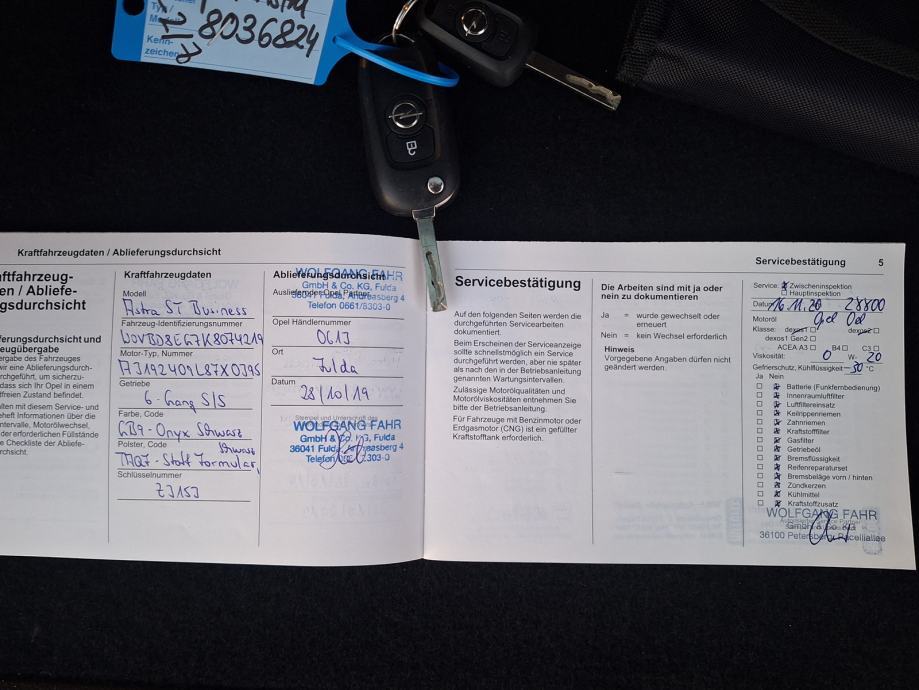 8036824
Kenn-
zeichen
Kraftfahrzeugdaten / Ablieferungsdurchsicht
aftfahrzeug-
en / Abliefe-
gsdurchsicht
eferungsdurchsicht und
eugübergabe
ergabe des Fahrzeuges
wir eine Ablieferungsdurch-
rchgeführt, um sicherzu-
dass sich Ihr Opel in einem
tfreien Zustand befindet.
alten mit diesem Service- und
heft Informationen über die
ntervalle, Motorölwechsel,
der erforderlichen Füllstände
e Checkliste der Abliefe-
rchsicht.
Kraftfahrzeugdaten
Modell
Astra ST Business
Fahrzeug-Identifizierungsnummer
W0VBD8EG7K8074219
Motor-Typ, Nummer
Getriebe
6-Gang S/S
Farbe, Code
GB9-Onyx Schwarz
Polster, Code
Schwarz
TAQ7-Stoff Formular,
Schlüsselnummer
Z3153
Ablieferungsdurchsicht
WOLFGANG FAHR
GmbH & Co. KG, Fulda
36041 Fulda, Andreasberg 4
Telefon 0661/8303-0
Opel Händlernummer
0613
Ort
Fulda
Datum
28/10/19
Stempel und Unterschrift des
WOLFGANG FAHR
GmbH & Co. KG, Fulda
36041 Fulda, Andreasberg 4
Servicebestätigung
5
Servicebestätigung
Auf den folgenden Seiten werden die
durchgeführten Servicearbeiten
dokumentiert.
Beim Erscheinen der Serviceanzeige
sollte schnellstmöglich ein Service
durchgeführt werden, aber nie später
als nach den in der Betriebsanleitung
genannten Wartungsintervallen.
Zulässige Motorölqualitäten und
Motorölviskositäten entnehmen Sie
bitte der Betriebsanleitung.
Für Fahrzeuge mit Benzinmotor oder
Erdgasmotor (CNG) ist ein gefüllter
Kraftstofftank erforderlich.
Die Arbeiten sind mit ja oder
nein zu dokumentieren
Ja = wurde gewechselt oder
erneuert
Nein = kein Wechsel erforderlich
Hinweis
Vorgegebene Angaben dürfen nicht
geändert werden.
Service: Zwischeninspektion
Hauptinspektion
Datum 16.11.20 28800
Motoröl Opel Oel
Klasse: dexos1 dexos2
dexos1 Gen2
ACEA A3 B4 C3
Viskosität: 0 W- 20
Gefrierschutz, Kühlflüssigkeit -30 °C
Ja Nein
Batterie (Funkfernbedienung)
Innenraumluftfilter
Luftfiltereinsatz
Keilrippenriemen
Zahnriemen
Kraftstofffilter
Gasfilter
Getriebeöl
Bremsflüssigkeit
Reifenreparaturset
Bremsbeläge vorn / hinten
Zündkerzen
Kühlmittel
Kraftstoffzusatz
WOLFGANG FAHR
GmbH & Co. KG
36100 Petersberg, Pacelliallee